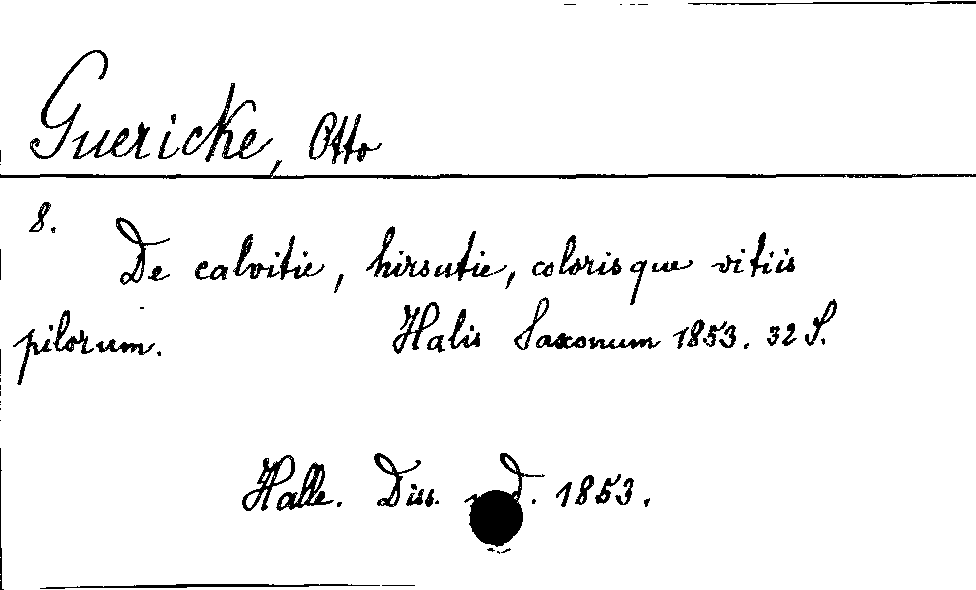 Guericke, Otto
8.
De calvitie, hirsutie, colorisque vitiis
pilorum. Halis Saxonum 1853. 32 S.
Halle. Diss. d. 1853.